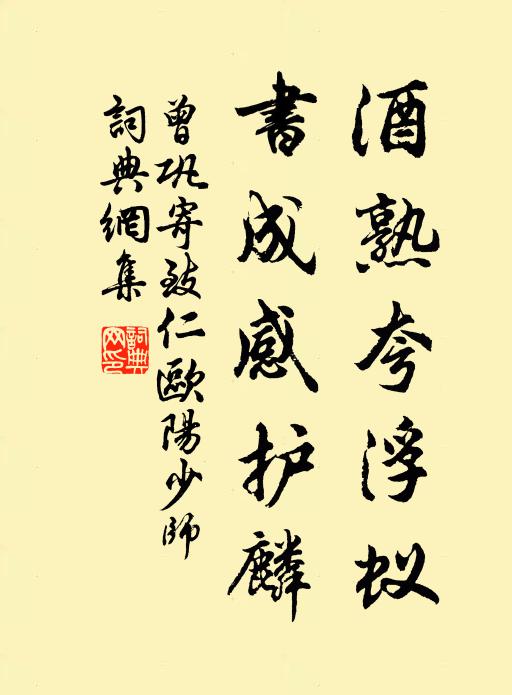 酒熟夸浮蚁
書成感护麟
曾巩寄致仁歐陽少師
詞典網集
詞典
网印